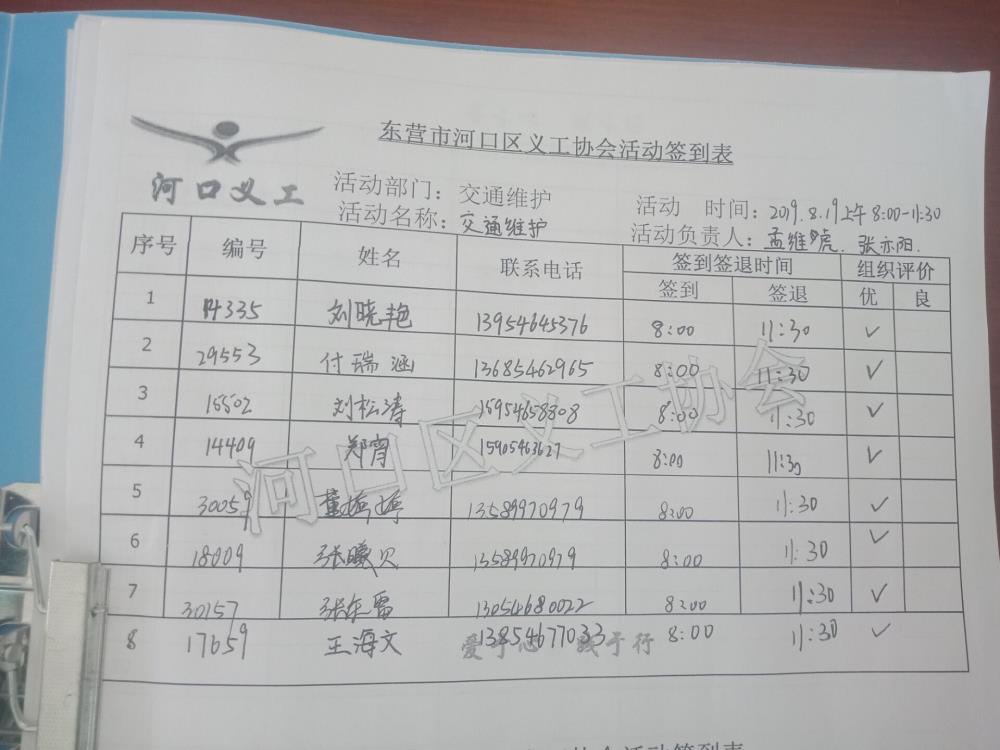 东营市河口区义工协会活动签到表
河口义工
活动部门：交通维护
活动 时间：2019.8.19上午8:00-11:30
活动名称：交通维护
活动负责人：孟维虎、张亦阳.
序号 编号 姓名 联系电话 签到签退时间 组织评价
签到 签退 优 良
1 14335 刘晓艳 13954645376 8:00 11:30 ✓
2 29553 付瑞涵 13685462965 8:00 11:30 ✓
3 15502 刘松涛 15954658808 8:00 11:30 ✓
4 14409 郑宵 15905463627 8:00 11:30 ✓
5 30059 董婷婷 13589970979 8:00 11:30 ✓
6 18009 张曦贝 13589970979 8:00 11:30 ✓
7 30157 张东雷 13054680022 8:00 11:30 ✓
8 17659 王海文 13854677033 8:00 11:30 ✓
爱于心 践于行
河口区义工协会
协会活动签到表